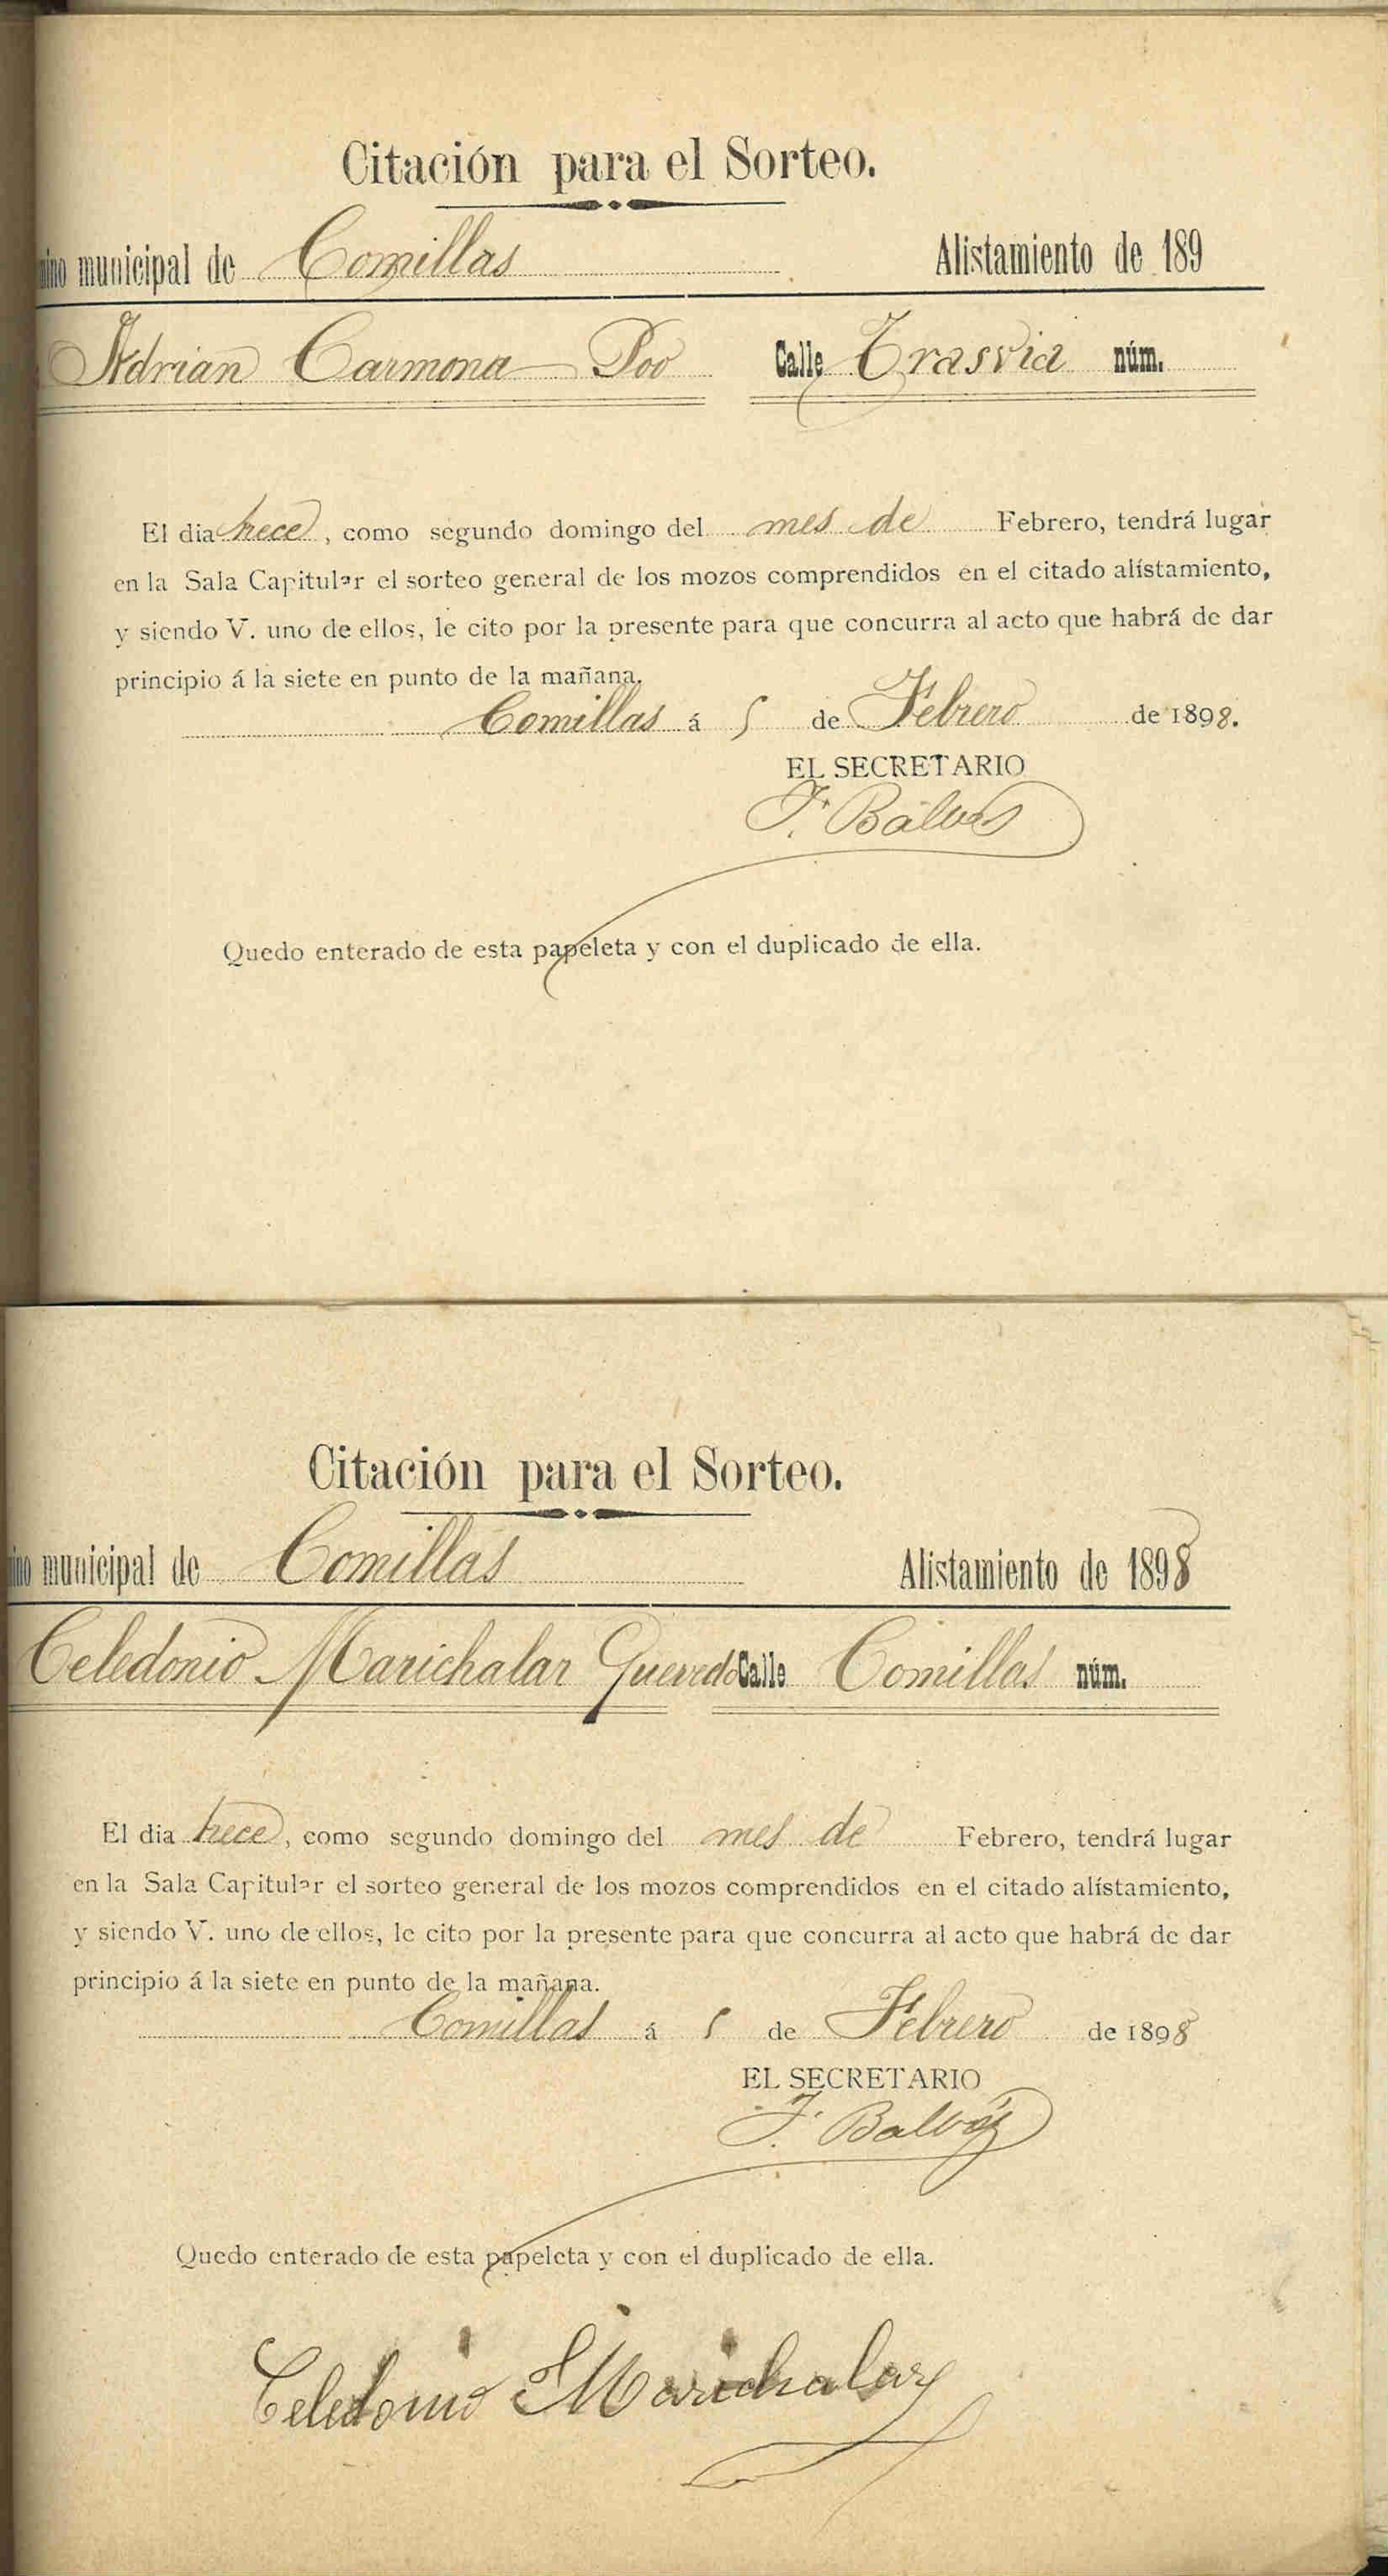 Citación para el Sorteo.
mino municipal de Comillas Alistamiento de 189
Adrian Carmona Poo Calle Trasvia núm.
El dia trece, como segundo domingo del mes de Febrero, tendrá lugar
en la Sala Capitular el sorteo general de los mozos comprendidos en el citado alistamiento,
y siendo V. uno de ellos, le cito por la presente para que concurra al acto que habrá de dar
principio á la siete en punto de la mañana.
Comillas á 5 de Febrero de 1898.
EL SECRETARIO
F. Balbás
Quedo enterado de esta papeleta y con el duplicado de ella.
Citación para el Sorteo.
mino municipal de Comillas Alistamiento de 1898
Celedonio Marichalar Quevedo Calle Comillas núm.
El dia trece, como segundo domingo del mes de Febrero, tendrá lugar
en la Sala Capitular el sorteo general de los mozos comprendidos en el citado alistamiento,
y siendo V. uno de ellos, le cito por la presente para que concurra al acto que habrá de dar
principio á la siete en punto de la mañana.
Comillas á 5 de Febrero de 1898
EL SECRETARIO
F. Balbás
Quedo enterado de esta papeleta y con el duplicado de ella.
Celedonio Marichalar